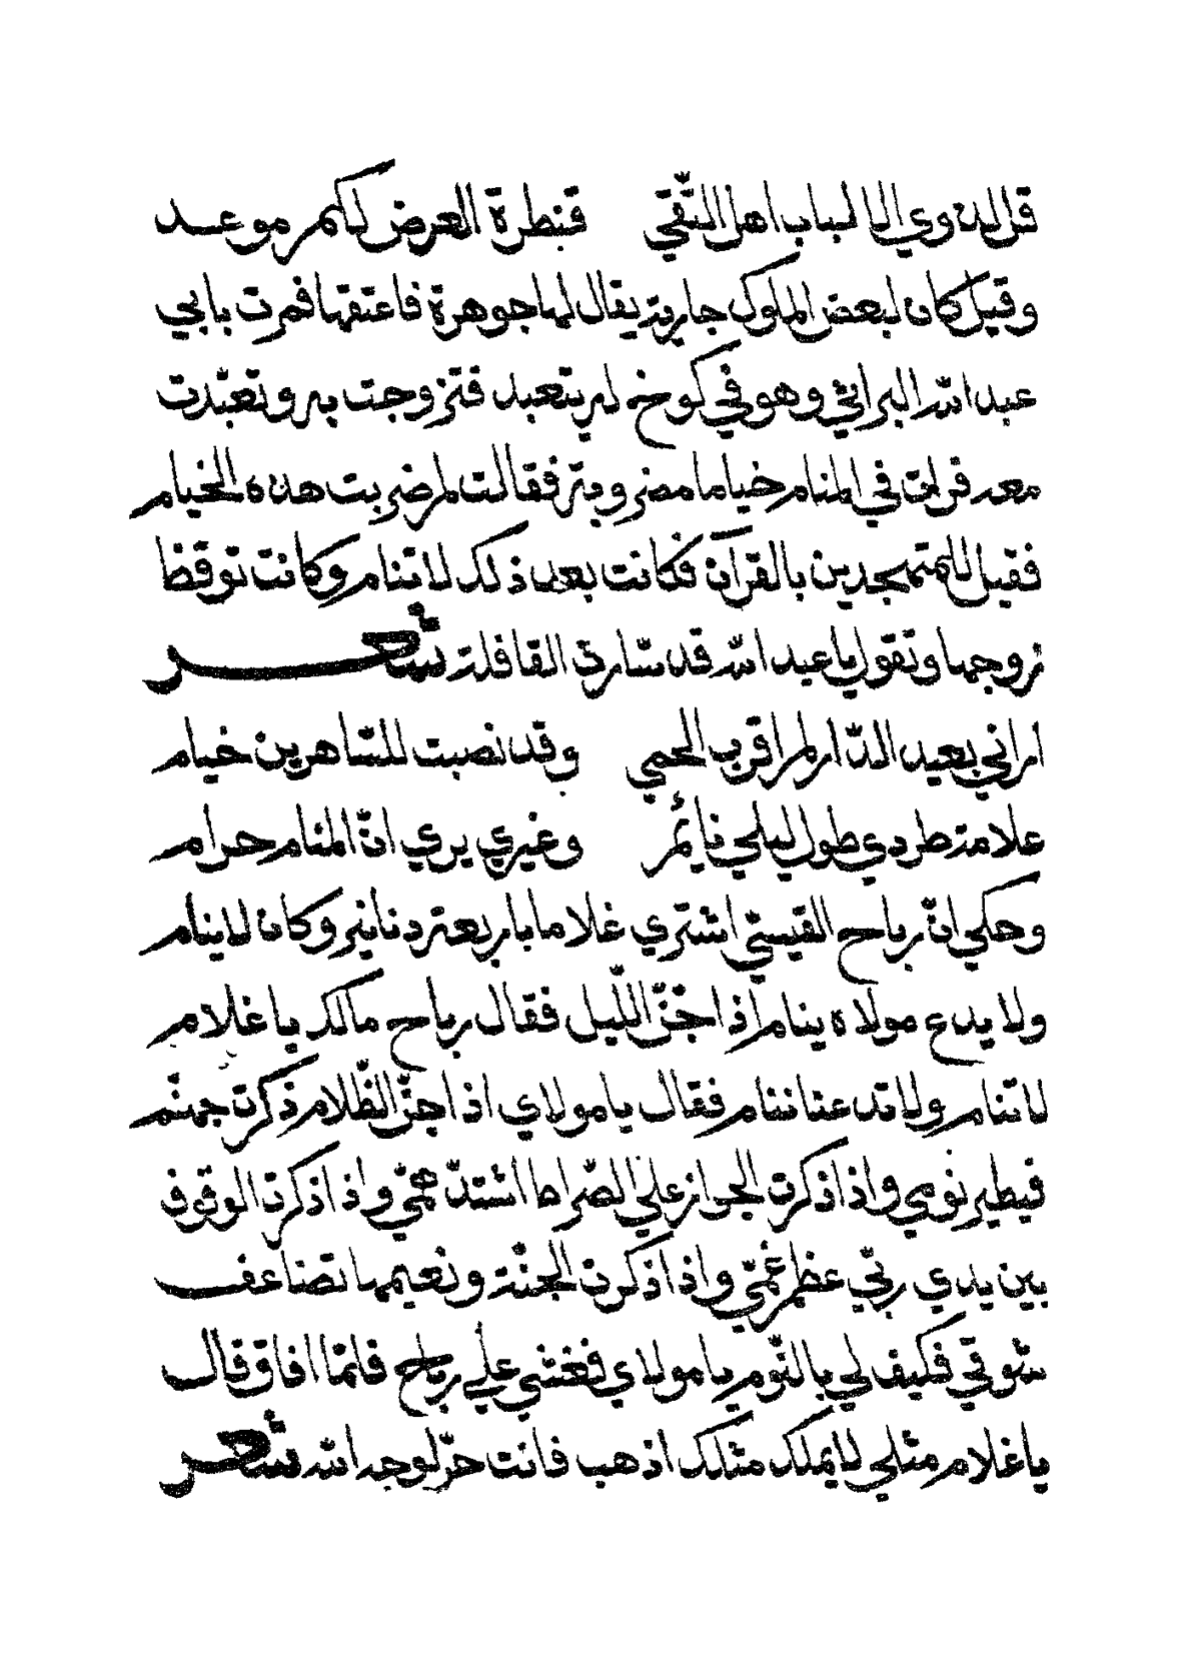 قل لذوي الالباب اهل التقي قنطرة العرض لكم موعد
وقيل كان لبعض الملوك جارية يقال لها جوهرة فاعتقها فمرت بابي
عبد الله البراثي وهو في كوخ له يتعبد فتزوجت به وتعبّدت
معه فرات في المنام خياما مضروبة فقالت لم ضربت هذه الخيام
فقيل للمتهجدين بالقرآن فكانت بعد ذلك لا تنام وكانت توقظ
زوجها وتقول يا عبد الله قد سارت القافلة شعر
اراني بعيد الدّار لم اقرب الحمي وقد نصبت للسّاهرين خيام
علامة طردي طول ليلي نائم وغيري يري انّ المنام حرام
وحكي انّ رباح القيسيّ اشتري غلاما باربعة دنانير وكان لا ينام
ولا يدع مولاه ينام اذا جنّ اللّيل فقال رباح مالك يا غلام
لا تنام ولا تدعنا ننام فقال يا مولاي اذا جنّ الظّلام ذكرت جهنّم
فيطير نومي واذا ذكرت الجواز علي الصّراط اشتدّ همّي واذا ذكرت الوقوف
بين يدي ربّي عظم غمّي واذا ذكرت الجنّة ونعيمها تضاعف
شوقي فكيف لي بالنّوم يا مولاي فغشي علي رباح فلمّا افاق قال
يا غلام مثلي لا يملك مثلك اذهب فانت حرّ لوجه الله شعر